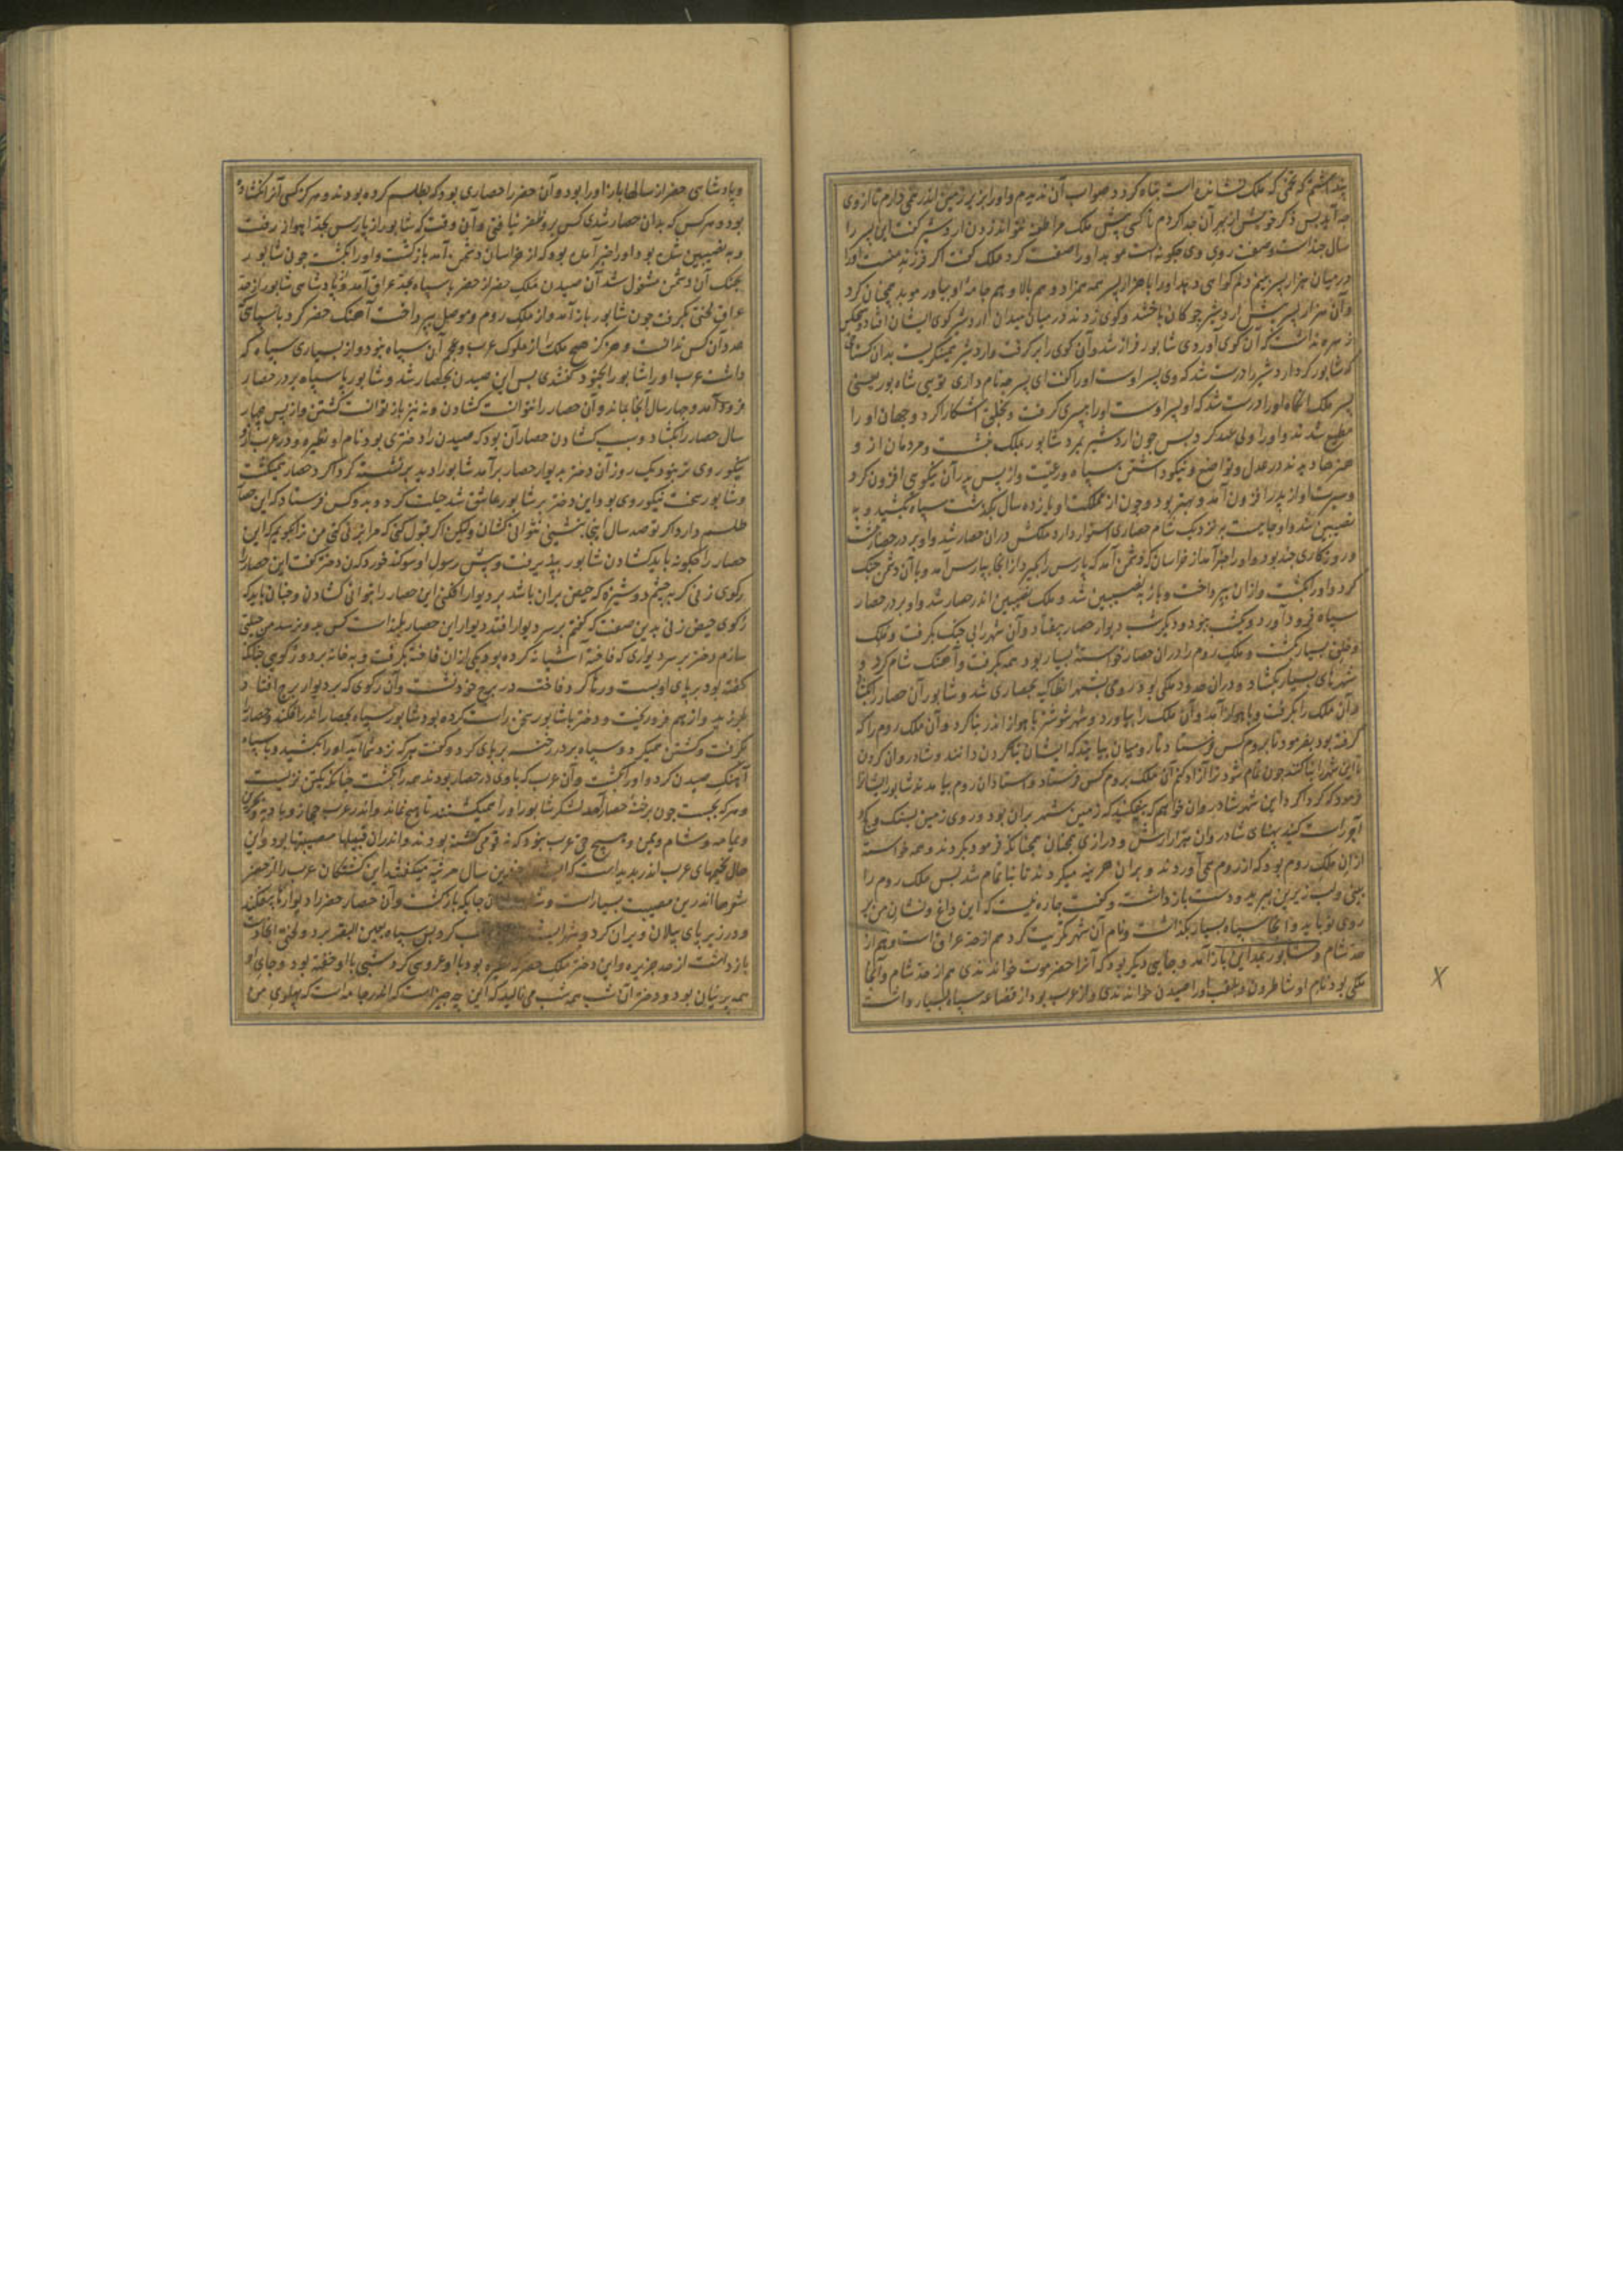 پنداشتم که تخمی که ملک نشانده است تباه کردد صواب آن ندیدم واورا بزیر زمین اندر همی دارم تا از وی
جه آید پس ذکر خویش از بهر آن جدا کردم تا کسی پیش ملک مرا طعنه نتواند زدن اردشیر کفت این پسر را
سال جند است وصفت روی وی جکونه است موبد اورا صفت کرد ملک کفت اکر فرزند منست اورا
در میان هزار پسر ببینم دلم کواهی دهد اورا با هزار پسر همه همزاد و هم بالا و هم جامه او بیاور موبد همچنان کرد
وآن هزار پسر پیش اردشیر جوکان باختند وکوی زدند در میان میدان اردشیر کوی ایشان افتاد وهیچکس
زهره نداشت که آن کوی آوردی شاپور فراز شد وآن کوی را برکرفت واردشیر همی نکریست بدان کستاخی
که شاپور کرد اردشیر را درست شد که وی پسر اوست اورا کفت ای پسر جه نام داری تو یی شاه پور یعنی
پسر ملک آنکاه اورا درست شد که او پسر اوست اورا بپسری کرفت و بخلق آشکارا کرد وجهان او را
مطیع شدند واورا ولی عهد کرد پس جون اردشیر بمرد شاپور بملک بنشست ومردمان از و
هنرها دیدند در عدل وتواضع ونیکو داشتن سپاه ورعیت واز پس پدر آن نیکویی افزون کرد
وسیرت او از پدر افزون آمد وبهتر بود وجون از مملکت او یازده سال بکذشت سپاه بکشید و به
نصیبین شد واو جاییست بر نزدیک شام حصاری استوار دارد ملکش دران حصار شد واو بر در حصار بنشست
وروزکاری جند بود واورا خبر آمد از خراسان که دشمن آمد که پارس را بگیرد از آنجا بپارس آمد وبا آن دشمن جنک
کرد واورا بکشت وازان بپرداخت وباز به نصیبین شد و ملک نصیبین اندر حصار شد واو بر در حصار
سپاه فرود آورد ویکشب ببود ودیکر شب دیوار حصار بیفتاد وآن شهر را بی جنک بکرفت وملک
وخلق بسیار بکشت وملک روم را دران حصار خواسته بسیار بود همه بکرفت وآهنک شام کرد و
شهرهای بسیار بکشاد ودران حدود ملکی بود رومی بشهر انطاکیه بحصاری شد وشاپور آن حصار را بکشاد
وآن ملک را بکرفت وباهواز آمد وآن ملک را بیاورد وشهر شوشتر باهواز اندر بنا کرد وآن ملک روم را که
کرفته بود بفرمود تا بروم کس فرستاد تا رومیان بیایند که ایشان بنا کردن دانند وشادروان کردن
تا این شهر را بنا کنند جون تمام شود ترا آزاد کنم آن ملک بروم کس فرستاد واستادان روم بیامدند شاپور ایشانرا
فرمود که کرداکرد این شهر شادروان خواهم که بیفکنید که زمین شهر بران بود وروی زمین بسنک وکج و
آجر راست کنید پهنای شادروان هزار ارش ودرازی همچنان همچنانکه فرمود بکردند وهمه خواسته
از ان ملک روم بود که از روم همی آوردند وبران هزینه میکردند تا بنا تمام شد پس ملک روم را
بینی ولب زیرین ببرید ودست باز داشت وکفت جاره نیست که این داغ ونشان من بر
روی تو باید وآنجا سپاه بسیار بکذاشت ونام آن شهر تکریت کرد هم از حد عراق است وهم از
حد شام وشاپور بمداین باز آمد وجایی دیکر بود که آنرا حضرموت خواندندی هم از حد شام وآنجا
ملکی بود نام او شاطرون وبلقب اورا ضیدن خواندندی واز عرب بود از قضاعه سپاه بسیار داشت
وپادشاهی حضر از سالها باز اورا بود وآن حضر را حصاری بود که بطلسم کرده بودند وهرکز کسی آنرا نکشاده
بود وهرکس که بدان حصار شدی کس برو ظفر نیافتی وآن وقت که شاپور از پارس بحد اهواز برفت
وبه نصیبین شده بود اورا خبر آمده بود که از خراسان دشمن آمد باز کشت واورا بکشت جون شاپور
بجنک آن دشمن مشغول شد آن ضیدن ملک حضر از حضر با سپاه بحد عراق آمد وپادشاهی شاپور از حد
عراق لختی بکرفت جون شاپور باز آمد واز ملک روم وموصل بپرداخت آهنک حضر کرد با سپاهی که
عدد آن کس ندانست وهرکز هیچ ملک از ملوک عرب وعجم آن سپاه نبود واز بسیاری سپاه که
داشت عرب اورا شاپور الجنود کفتندی پس این ضیدن بحصار شد وشاپور با سپاه بر در حصار
فرود آمد وجهار سال آنجا بماند وآن حصار را نتوانست کشادن ونه نیز باز توانست کشتن واز پس چهار
سال حصار را بکشاد وسبب کشادن حصار آن بود که ضیدن را دختری بود نام او نظیره ودر عرب از و
نیکوروی تر نبود یک روز آن دختر بدیوار حصار برآمد شاپور را دید بر نشسته کرداکرد حصار همیکشت
وشاپور سخت نیکوروی بود این دختر بر شاپور عاشق شد حیلت کرد وبدو کس فرستاد که این حصار
طلسم دارد اکر تو صد سال اینجا بنشینی نتوانی کشادن ولیکن اکر قبول کنی که مرا بزنی کنی من ترا بکویم که این
حصار را جکونه باید کشادن شاپور بپذیرفت وپیش رسول او سوکند خورد که من دختر کفت این حصار را
رکوی زنی کربه چشم دوشیزه که حیض بران باشد بر دیوار افکنی این حصار را بتوانی کشادن وجنان باید که
رکوی حیض زنی بدین صفت که کفتم بر سر دیوار افتد دیوار این حصار بلند است کس بدو نرسد من حیلتی
سازم دختر بر سر دیواری که فاخته آشیانه کرده بود یکی ازان فاخته بکرفت وبه خانه برد ورکوی جنانکه
کفته بود بر پای او ببست ورها کرد فاخته در برج خود نشست وآن رکوی که بر دیوار برج افتاد
بلرزید واز هم فرو ریخت ودختر با شاپور سخن راست کرده بود شاپور سپاه بحصار اندر افکند وحصار را
بکرفت وکشتن همیکرد وسپاه بر در رخنه بر پای کرد وکفت هرکه نزد شما آید اورا بکشید وبا سپاه
آهنک ضیدن کرد واورا بکشت وآن عرب که با وی در حصار بودند همه را بکشت جنانکه یکتن نزیست
وهرکه بجست جون برخنه حصار آمد لشکر شاپور اورا همیکشتند تا هیچ نماند واندر عرب حجاز وبادیه وبحرین
ویمامه وشام ویمن وهیچ حی عرب نبود که نه قومی کشته بودند واندران قبیلها مصیبتها بود واین
حال بخیمهای عرب اندر پدید است که ایشان جندین سال مرثیه میکفتند این کشتکان عرب را از حضر
شعرها اندرین مصیبت بسیار است وشاپور آن جایکه باز کشت وآن حصار حضر را دیوارها بیفکند
ودر زیر پای پیلان ویران کرد کرد پس سپاه بعین البقر برد ولختی آنجا دست
باز داشت از حد جزیره واین دختر ملک حضر که نظیره بود با او عروسی کرد وشبی با او خفته بود وجای او
همه پرنیان بود ودختر آن شب همه شب می نالید که این جه جیز است که اندر جامه است که پهلوی من